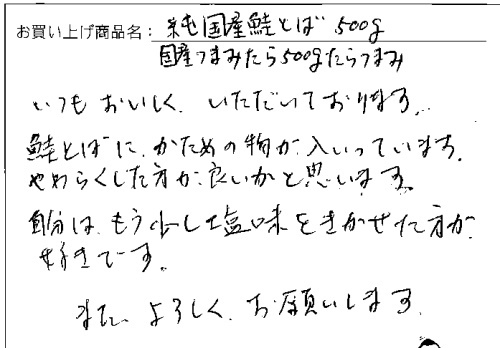 お買い上げ商品名：純国産鮭とば 500g
国産つまみたら500gたらつまみ
いつもおいしく、いただいております。
鮭とばに、かための物が、入いっています。
やわらくした方が、良いかと思います。
自分は、もう少し塩味をきかせた方が、
好きです。
また、よろしく、お願いします。